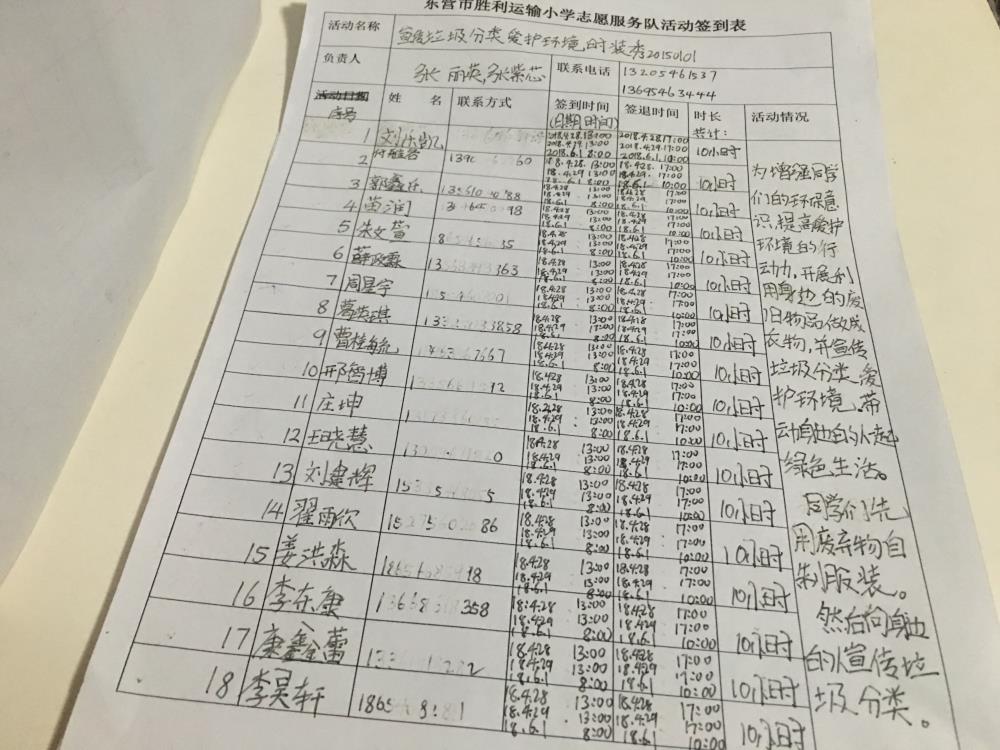 东营市胜利运输小学志愿服务队活动签到表
活动名称 宣传垃圾分类爱护环境,时装秀20150101
负责人 张丽英,张紫芯 联系电话 13205461537
13695463444
活动日期 序号 姓 名 联系方式 签到时间(日期,时间) 签退时间 时长 共计: 活动情况
1 刘乐凯 2018.4.28.13:00 2018.4.28.17:00 10小时
2018.4.29.13:00 2018.4.29.17:00
2018.6.1 8:00 2018.6.1 10:00
2 18.4.28. 13:00 18.4.28. 17:00 10小时
18.4.29 13:00 18.4.29. 17:00
8:00 18.6.1 10:00
3 18.4.28 13:00 18.4.28 17:00 10小时
18.4.29 13:00 18.4.29 17:00
18.6.1 8:00 18.6.1 10:00
4 苗润 18.4.28 13:00 18.4.28 17:00 10小时
18.4.29 13:00 18.4.29 17:00
18.6.1 8:00 18.6.1 10:00
5 朱文萱 18.4.28 13:00 18.4.28 17:00 10小时
18.4.29 13:00 18.4.29 17:00
18.6.1 8:00 18.6.1 10:00
6 薛政霖 18.4.28 13:00 18.4.28 17:00 10小时
18.4.29 13:00 18.4.29 17:00
18.6.1 8:00 18.6.1 10:00
7 周昱宇 18.4.28 13:00 18.4.28 17:00 10小时
18.4.29 13:00 18.4.29 17:00
18.6.1 8:00 18.6.1 10:00
8 葛浩琪 18.4.28 13:00 18.4.28 17:00 10小时
18.4.29 13:00 18.4.29 17:00
18.6.1 8:00 18.6.1 10:00
9 曹桂毓 18.4.28 13:00 18.4.28 17:00 10小时
18.4.29 13:00 18.4.29 17:00
18.6.1 8:00 18.6.1 10:00
10 邢智博 18.4.28 13:00 18.4.28 17:00 10小时
18.4.29 13:00 18.4.29 17:00
18.6.1 8:00 18.6.1 10:00
11 庄坤 18.4.28 13:00 18.4.28 17:00 10小时
18.4.29 13:00 18.4.29 17:00
18.6.1 8:00 18.6.1 10:00
12 王晓慧 18.4.28 13:00 18.4.28 17:00 10小时
18.4.29 13:00 18.4.29 17:00
18.6.1 8:00 18.6.1 10:00
13 刘建辉 18.4.28 13:00 18.4.28 17:00 10小时
18.4.29 13:00 18.4.29 17:00
18.6.1 8:00 18.6.1 10:00
14 翟雨欣 18.4.28 13:00 18.4.28 17:00 10小时
18.4.29 13:00 18.4.29 17:00
18.6.1 8:00 18.6.1 10:00
15 姜洪淼 18.4.28 13:00 18.4.28 17:00 10小时
18.4.29 13:00 18.4.29 17:00
18.6.1 8:00 18.6.1 10:00
16 李东康 18.4.28 13:00 18.4.28 17:00 10小时
18.4.29 13:00 18.4.29 17:00
18.6.1 8:00 18.6.1 10:00
17 康鑫蕾 18.4.28 13:00 18.4.28 17:00 10小时
18.4.29 13:00 18.4.29 17:00
18.6.1 8:00 18.6.1 10:00
18 李昊轩 18.4.28 13:00 18.4.28 17:00 10小时
18.4.29 13:00 18.4.29 17:00
18.6.1 8:00 18.6.1 10:00
为增强同学
们的环保意
识,提高爱护
环境的行
动力,开展利
用身边的废
旧物品做成
衣物,并宣传
垃圾分类,爱
护环境,带
动身边的人一起
绿色生活。
同学们先
用废弃物自
制服装。
然后向身边
的人宣传垃
圾分类。